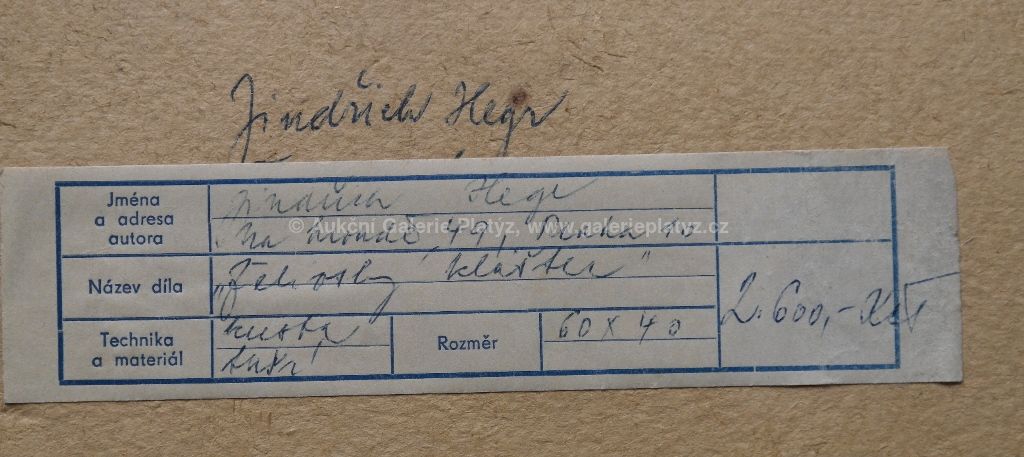 Jindřich Hegr
Jména a adresa autora
Jindřich Hegr
Na 49, Praha
© Aukční Galerie Platýz, www.galerieplatyz.cz
Název díla
„Želivský klášter"
Technika a materiál
kresba
tuší
Rozměr
60 x 40
2.600,- Kčs